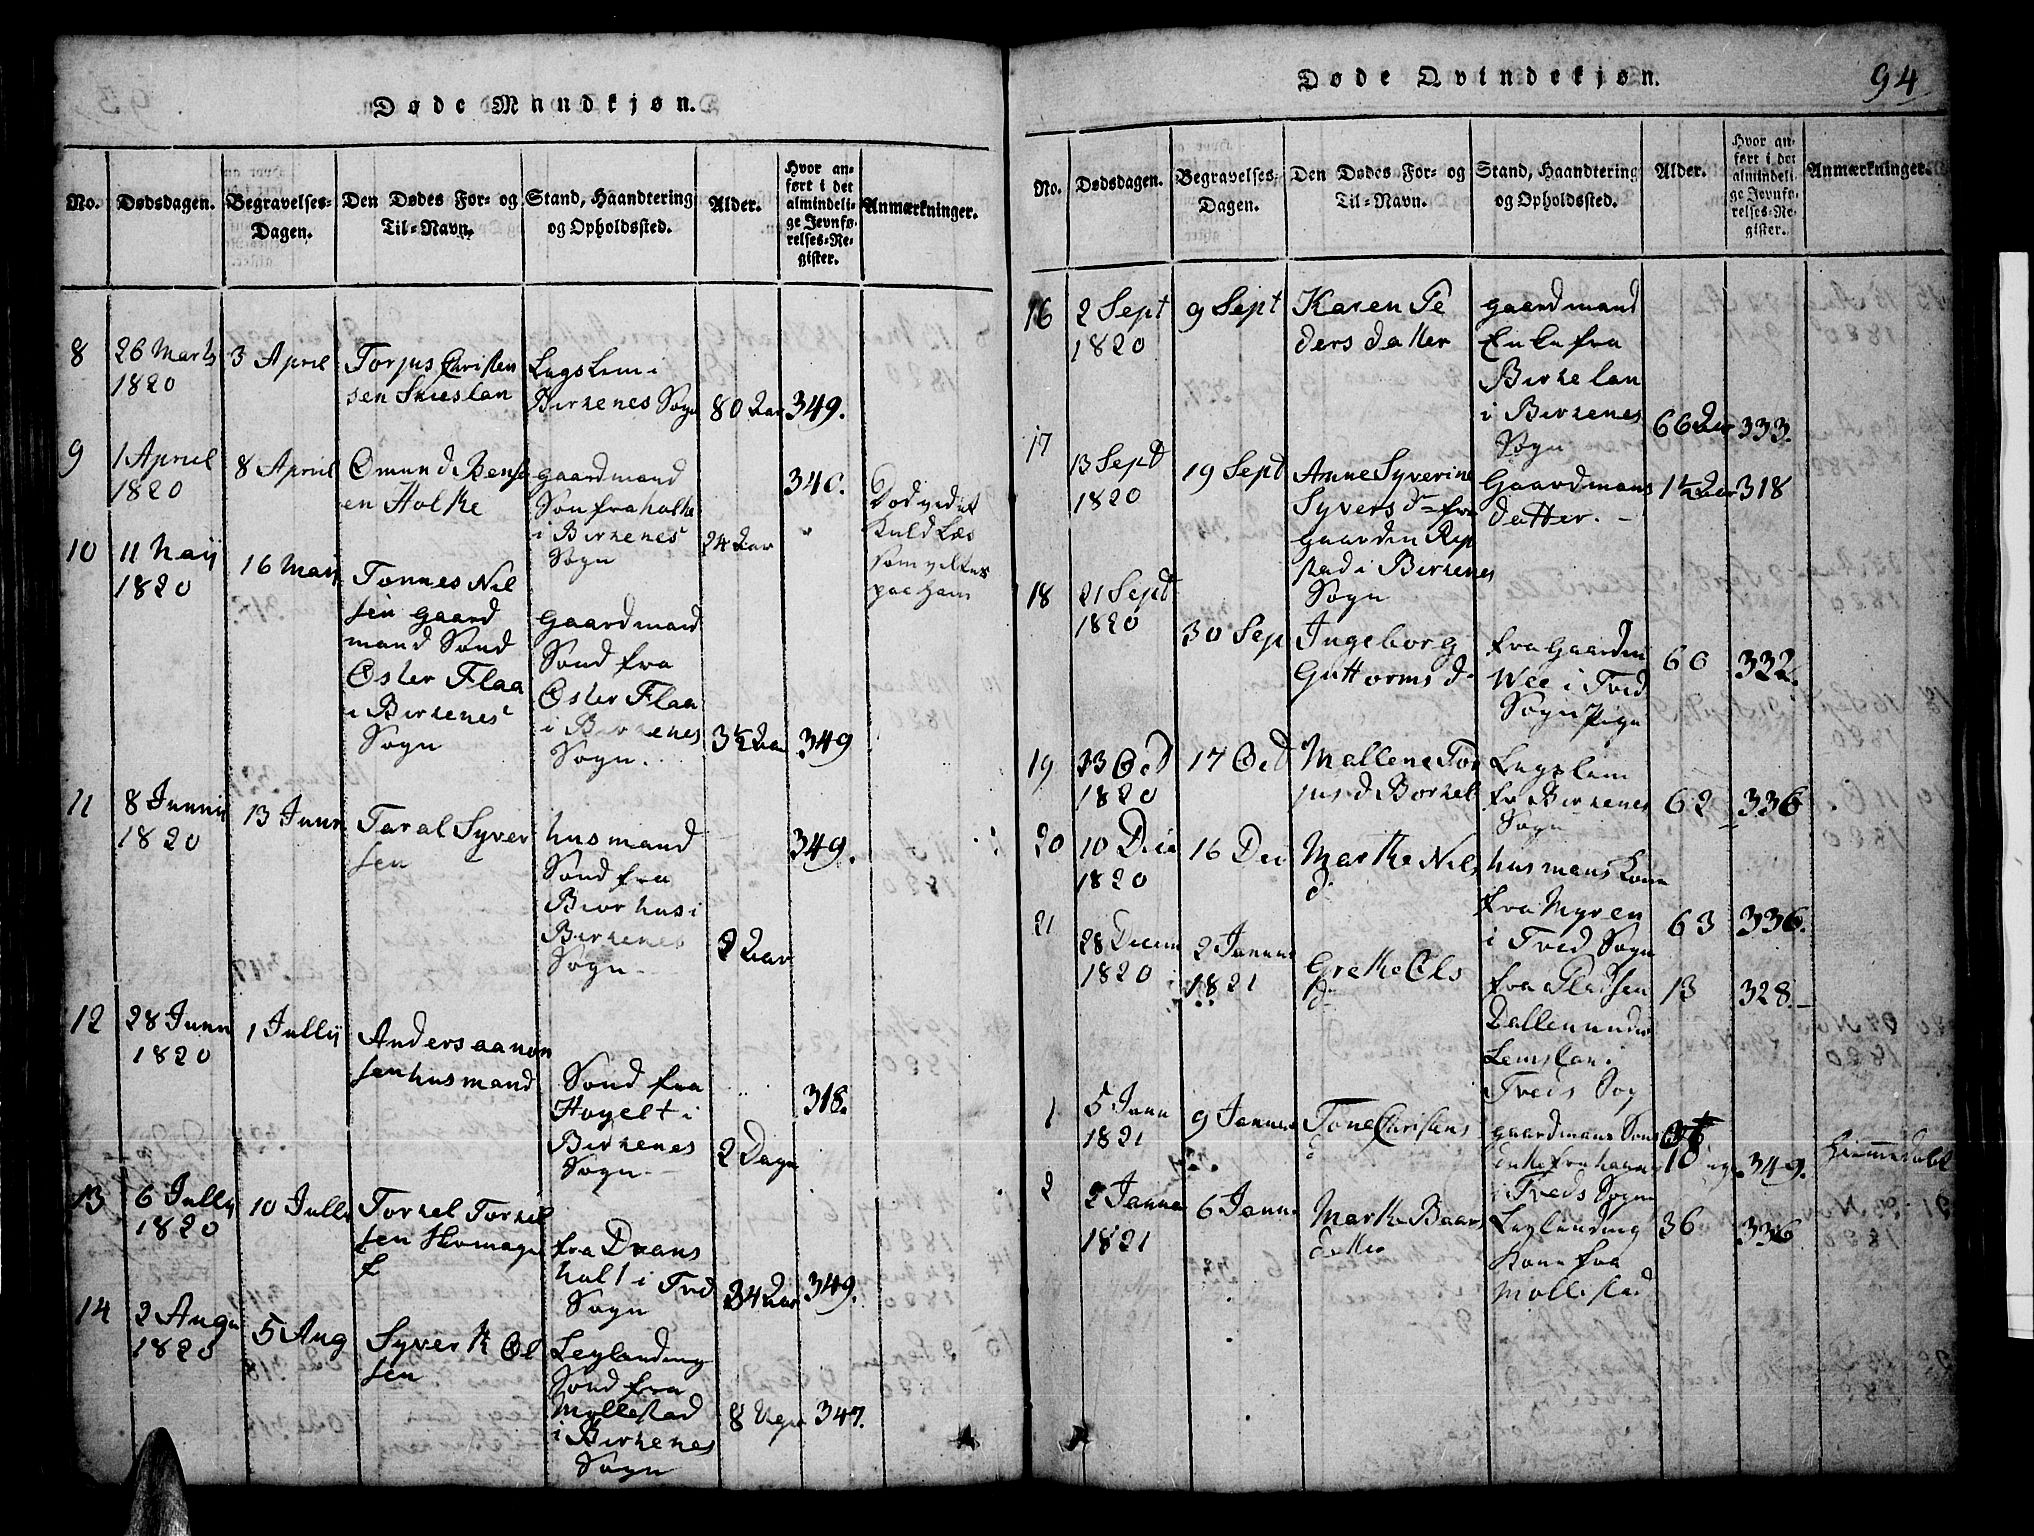 Døde Mandkjøn.
No.
Dødsdagen.
Begravelses-
Dagen.
Den Dødes For- og
Til-Navn.
Stand, Haandtering
og Opholdssted.
Alder.
Hvor an-
ført i det
almindeli-
ge Jevnfø-
relses-Re-
gister.
Anmærkninger.
8
26 Marts
1820
3 April
Torjus Christen
sen
Lugslem i
Birkenes Sogn
80 Aar
349.
9
1 April
1820
8 April
Omund Bens
en Holke
gaardmand
Søn fra Holke
i Birkenes
Sogn
24 Aar
340.
Død ved et
Kuld Læs
som veltes
paa ham
10
11 Maij
1820
16 Maij
Tønnes Nil
sen gaard
mand Sønd
Øster Flaa
i Birkenes
Sogn
Gaardmand
Sønd fra
Øster Flaa
i Birkenes
Sogn.
3½ Aar
349
11
8 Junii
1820
13 Juni
Taral Syver
sen
husmand
Sønd fra
Birkenes
Sogn
2 Aar
349.
12
28 Juni
1820
1 Jullij
Anders Aanon
sen husmand
Sønd fra
Høgelt i
Birkenes
Sogn
2 Dage
318.
13
6 Jullij
1820
10 Julli
Torkel Torkil
sen
fra Drans
holt i Tved
Sogn
34 Aar
349.
14
2 Augu
1820
5 Aug
Syvert Ol
sen
Leylending
Sønd fra
Mollestad
i Birkenes
Sogn
8 Uger
347.
Døde Qvindekjøn.
94
No.
Dødsdagen.
Begravelses-
Dagen.
Den Dødes For- og
Til-Navn.
Stand, Haandtering
og Opholdssted.
Alder.
Hvor an-
ført i det
almindeli-
ge Jevnfø-
relses-Re-
gister.
Anmærkninger.
16
2 Sept
1820
9 Sept
Karen Pe
ders datter
gaardmand
Enke fra
Birkelan
i Birkenes
Sogn
66 Aar
333.
17
13 Sept
1820
19 Sept
Anne Syverine
Syvers d fra
gaarden Rep
stad i Birkenes
Sogn
Gaardmans
datter.
1½ Aar
318
18
21 Sept
1820
30 Sep
Ingeborg
Guttorms d
fra Gaarden
Wee i Tved
Sogn Pige
60
332.
19
Oct
1820
17 Oct
Mallene Tor
jus d
Lugslem
fr Birkenes
Sogn
62
336
20
10 Dec
1820
16 Dec
Marthe Nils
d
husmans Kone
fra Myren
i Tved Sogn
63
336.
21
28 Decem
1820
2 Janua
1821
Grethe Ols
d
fra Pladsen
Dallen under
Lemslan i
Tveds Sog
13
328
1
5 Janu
1821
9 Januar
Tone Christens
d
gaardmans Søns
Enke fra
i Tveds Sogn
349.
2
2 Janua
1821
6 Janu
Marthe Baars
datter
Leylending
Kone fra
Mollestad
36
336